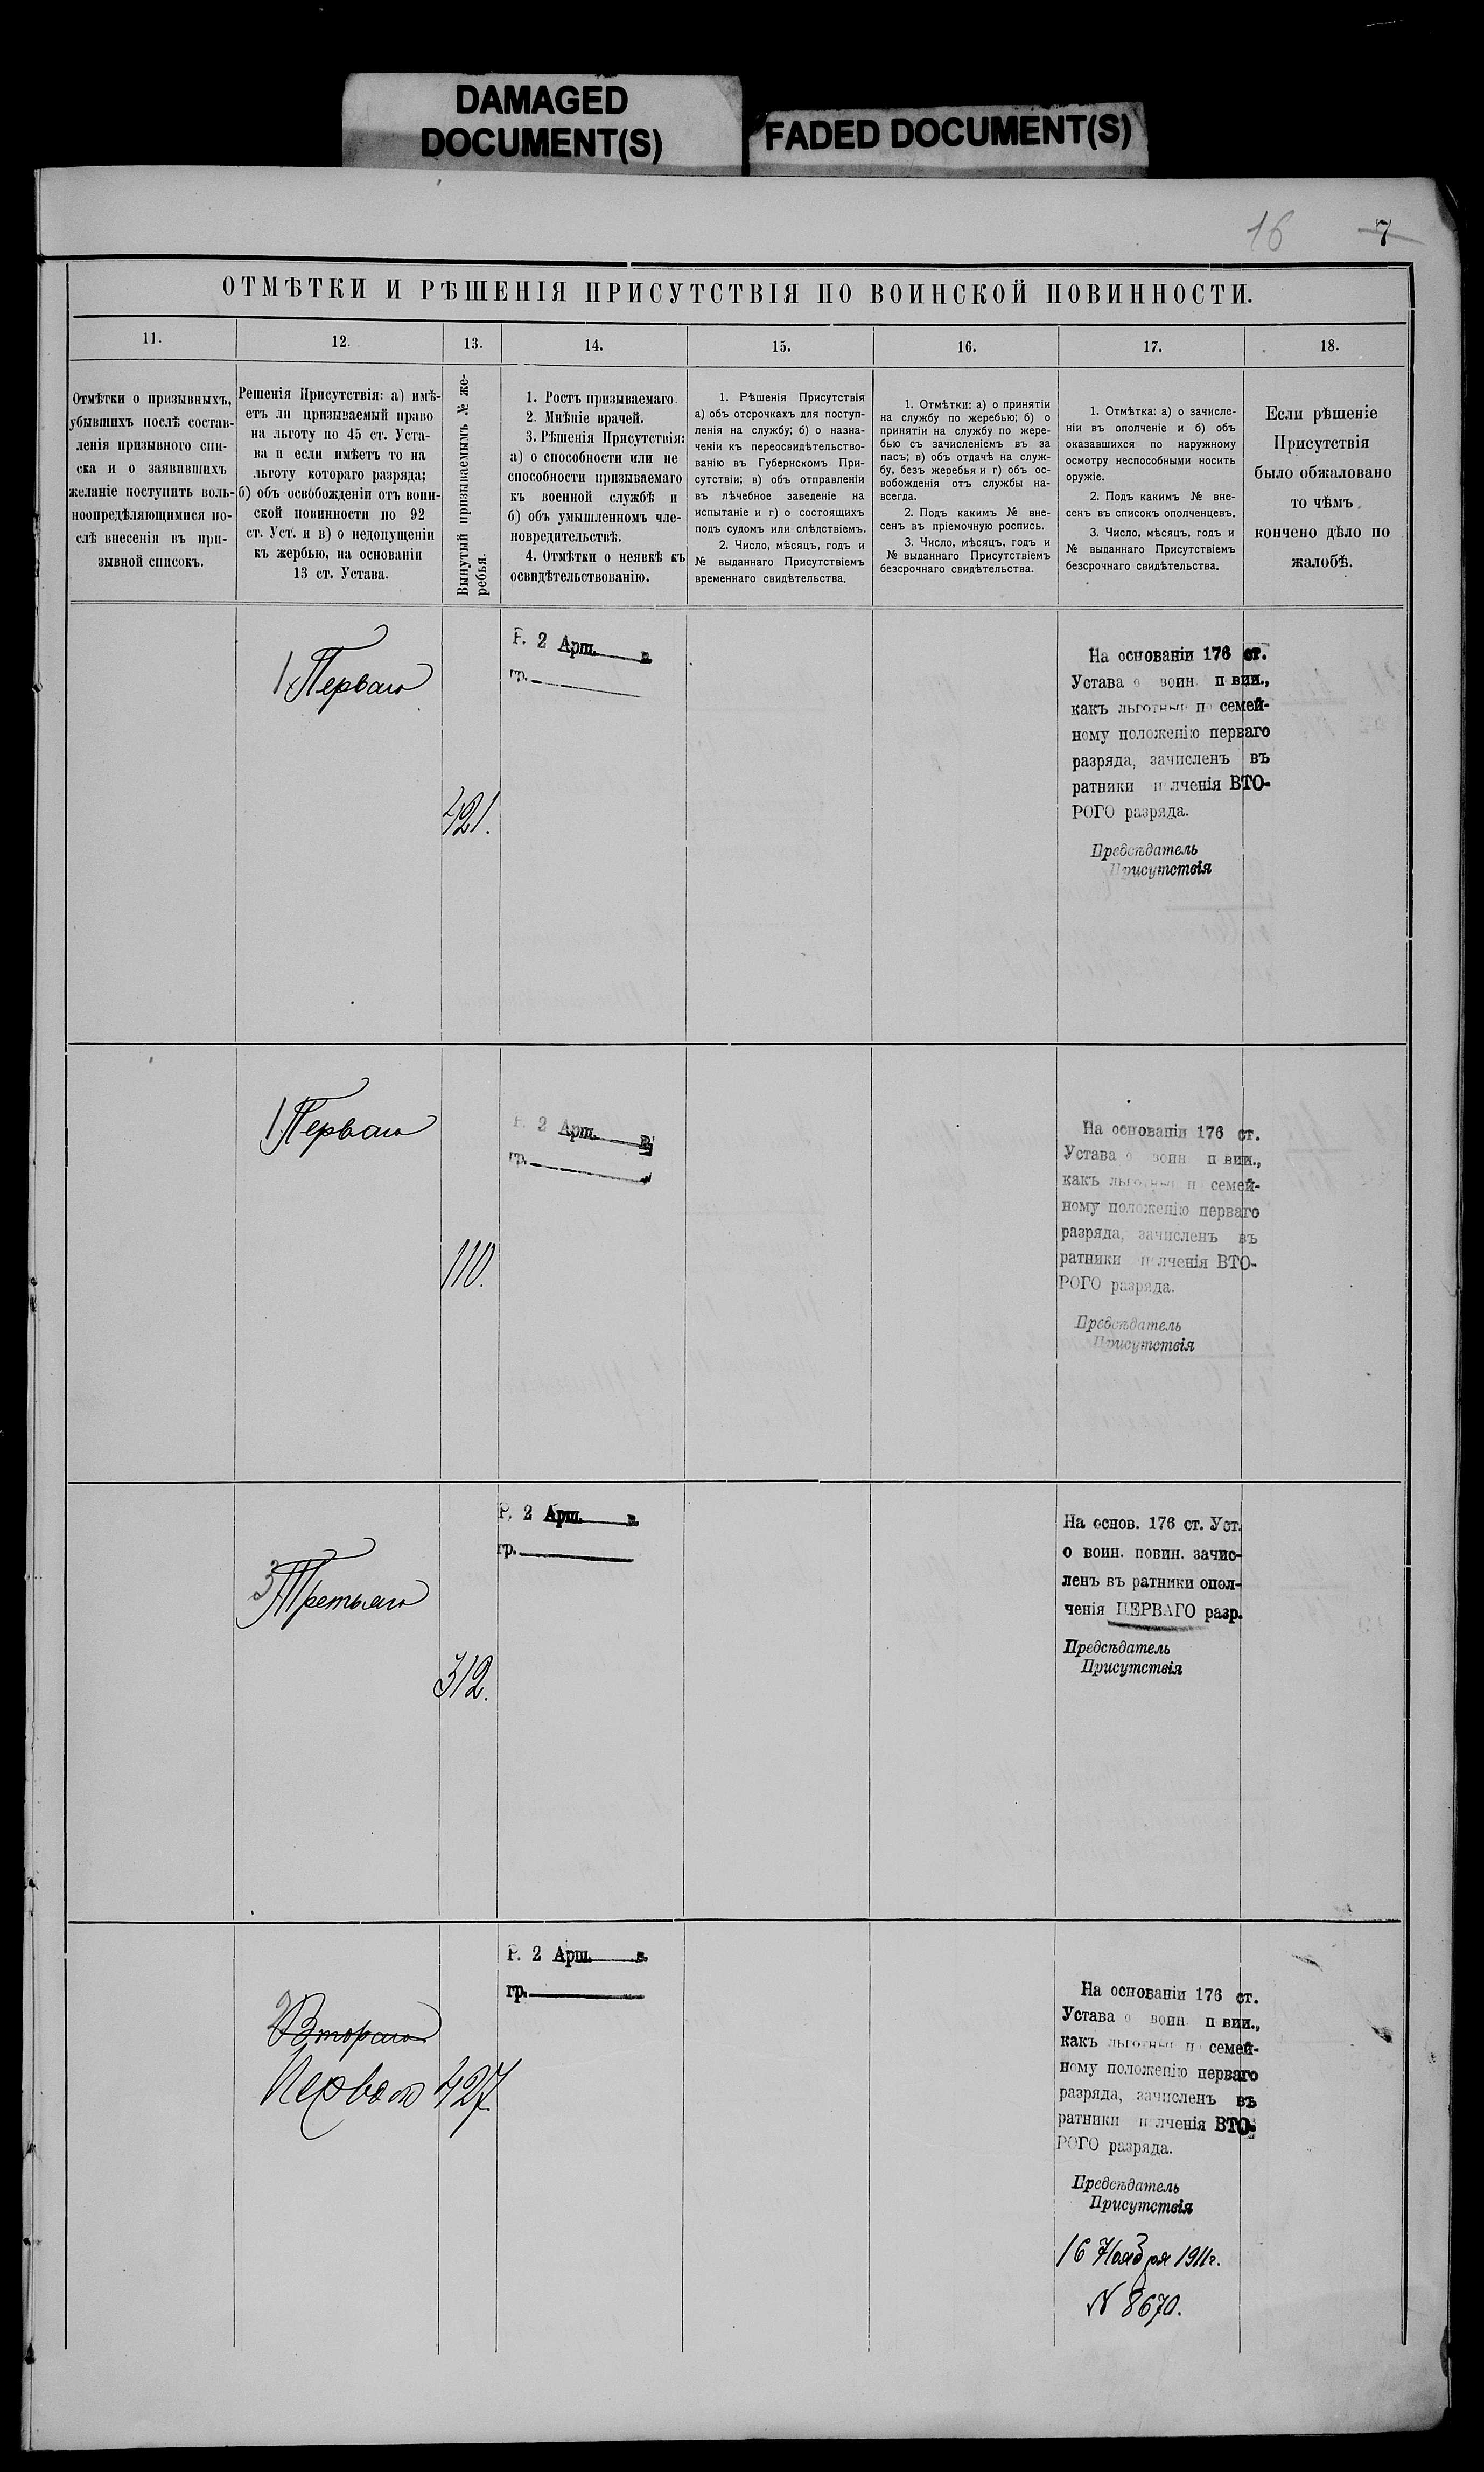 DAMAGED
DOCUMENT(S)
FADED DOCUMENT(S)
16 7
ОТМѢТКИ И РѢШЕНІЯ ПРИСУТСТВІЯ ПО ВОИНСКОЙ ПОВИННОСТИ.
11.
12.
13.
14.
15.
16.
17.
18.
Отмѣтки о призывныхъ,
убывшихъ послѣ состав-
ленія призывного спи-
ска и о заявившихъ
желаніе поступить воль-
ноопредѣляющимися по-
слѣ внесенія въ при-
зывной списокъ.
Решенія Присутствія: а) имѣ-
етъ ли призываемый право
на льготу по 45 ст. Уста-
ва и если имѣетъ то на
льготу котораго разряда;
б) объ освобожденіи отъ воин-
ской повинности по 92
ст. Уст. и в) о недопущеніи
къ жербью, на основаніи
13 ст. Устава.
Вынутый призываемымъ № же-
ребья.
1. Ростъ призываемаго.
2. Мнѣніе врачей.
3. Рѣшенія Присутствія:
а) о способности или не
способности призываемаго
къ военной службѣ и
б) объ умышленномъ чле-
новредительствѣ.
4. Отмѣтки о неявкѣ къ
освидѣтельствованію.
1. Рѣшенія Присутствія
а) объ отсрочкахъ для поступ-
ленія на службу; б) о назна-
ченіи къ переосвидѣтельство-
ванію въ Губернскомъ При-
сутствіи; в) объ отправленіи
въ лѣчебное заведеніе на
испытаніе и г) о состоящихъ
подъ судомъ или слѣдствіемъ.
2. Число, мѣсяцъ, годъ и
№ выданнаго Присутствіемъ
временнаго свидѣтельства.
1. Отмѣтки: а) о принятіи
на службу по жеребью; б) о
принятіи на службу по жере-
бью съ зачисленіемъ въ за
пасъ; в) объ отдачѣ на служ-
бу, безъ жеребья и г) объ ос-
вобожденія отъ службы на-
всегда.
2. Подъ какимъ № вне-
сенъ въ пріемочную роспись.
3. Число, мѣсяцъ, годъ и
№ выданнаго Присутствіемъ
безсрочнаго свидѣтельства.
1. Отмѣтка: а) о зачисле-
ніи въ ополченіе и б) объ
оказавшихся по наружному
осмотру неспособными носить
оружіе.
2. Подъ какимъ № вне-
сенъ въ списокъ ополченцевъ.
3. Число, мѣсяцъ, годъ и
№ выданнаго Присутствіемъ
безсрочнаго свидѣтельства.
Если рѣшеніе
Присутствія
было обжаловано
то чѣмъ
кончено дѣло по
жалобѣ.
1 Перваго
421.
Р. 2 Арш. в.
гр.
На основаніи 176 ст.
Устава о воин п вин.,
какъ льготный по семей-
ному положенію перваго
разряда, зачисленъ въ
ратники п лченія ВТО-
РОГО разряда.
Предсѣдатель
Присутствія
1 Перваго
110.
Р. 2 Арш. в.
гр.
На основаніи 176 ст.
Устава о воин п вин.,
какъ льготный п семей-
ному положенію перваго
разряда, зачисленъ въ
ратники п лченія ВТО-
РОГО разряда.
Предсѣдатель
Присутствія
3 Третьяго
312.
Р. 2 Арш. в.
гр.
На основ. 176 ст. Уст.
о воин. повин. зачис-
ленъ въ ратники опол-
ченія ПЕРВАГО разр.
Предсѣдатель
Присутствія
2 Втораго
Перваго
427.
Р. 2 Арш. в.
гр.
На основаніи 176 ст.
Устава о воин п вин.,
какъ льготный п семей-
ному положенію перваго
разряда, зачисленъ въ
ратники п лченія ВТО-
РОГО разряда.
Предсѣдатель
Присутствія
16 Ноября 1911 г.
N 8670.